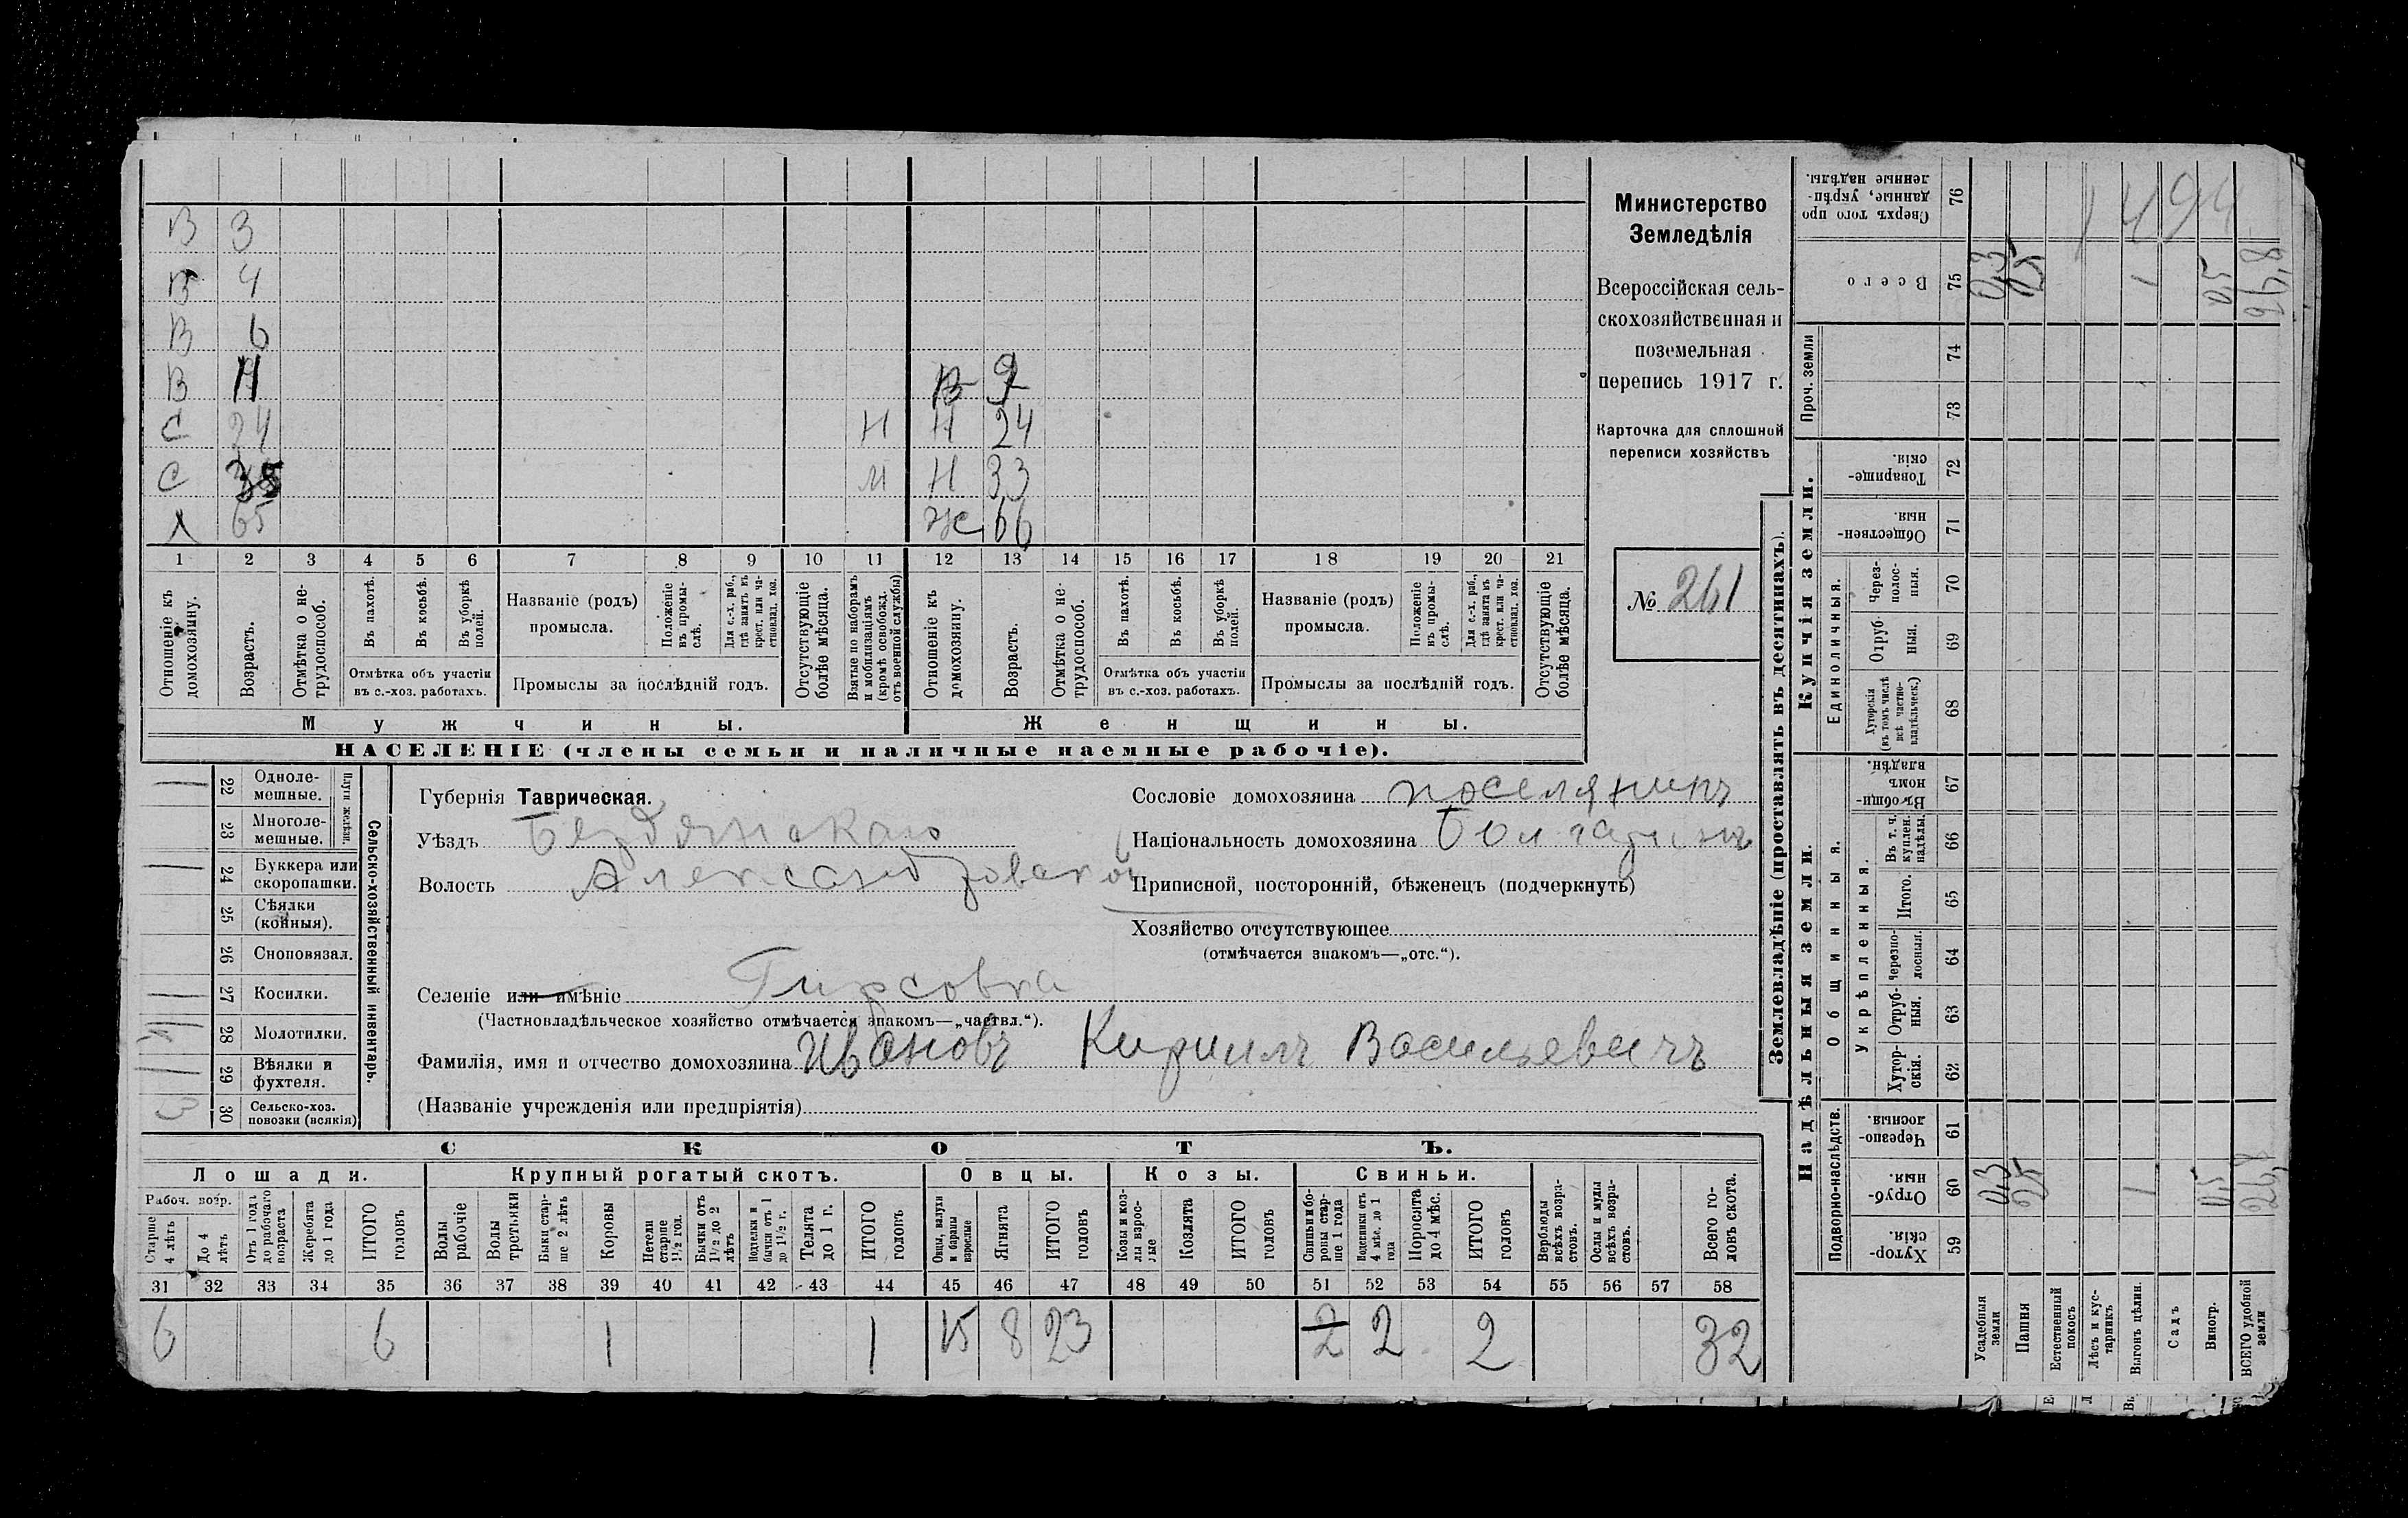 В 3
В 4
В 6
В 11 В 9
С 24 Н Н 24
С 35 М Н 33
Л 65 Ж 66
1 2 3 4 5 6 7 8 9 10 11 12 13 14 15 16 17 18 19 20 21
Отношеніе къ домохозяину.
Возрастъ.
Отмѣтка о нетрудоспособ.
Въ пахотѣ.
Въ косьбѣ.
Въ уборкѣ полей.
Отмѣтка объ участіи въ с.-хоз. работахъ.
Названіе (родъ) промысла.
Положеніе въ промыслѣ.
Для с.-х. раб., гдѣ занятъ въ крест. или частновлад. хоз.
Промыслы за послѣдній годъ.
Отсутствующіе болѣе мѣсяца.
Взятые по наборамъ и мобилизаціямъ (кромѣ освобожд. отъ военной службы)
Отношеніе къ домохозяину.
Возрастъ.
Отмѣтка о нетрудоспособ.
Въ пахотѣ.
Въ косьбѣ.
Въ уборкѣ полей.
Отмѣтка объ участіи въ с.-хоз. работахъ.
Названіе (родъ) промысла.
Положеніе въ промыслѣ.
Для с.-х. раб., гдѣ занята въ крест. или частновлад. хоз.
Промыслы за послѣдній годъ.
Отсутствующіе болѣе мѣсяца.
Мужчины. Женщины.
НАСЕЛЕНІЕ (члены семьи и наличные наемные рабочіе).
Министерство
Земледѣлія
Всероссійская сель-
скохозяйственная и
поземельная
перепись 1917 г.
Карточка для сплошной
переписи хозяйствъ
№ 261
1 22 Одноле-мешные.
23 Многоле-мешные.
Плуги желѣзн.
1 24 Буккера или скоропашки.
25 Сѣялки (конныя).
26 Сноповязал.
1 27 Косилки.
28 Молотилки.
1 29 Вѣялки и фухтеля.
3 30 Сельско-хоз. повозки (всякія)
Сельско-хозяйственный инвентарь.
Губернія Таврическая.
Уѣздъ Бердянскаго
Волость Александровской
Селеніе или имѣніе Гирсовка
(Частновладѣльческое хозяйство отмѣчается знакомъ—„частвл.“).
Фамилія, имя и отчество домохозяина Ивановъ Кириллъ Васильевичъ
(Названіе учрежденія или предпріятія)
Сословіе домохозяина поселянинъ
Національность домохозяина Болгаринъ
Приписной, посторонній, бѣженецъ (подчеркнуть)
Хозяйство отсутствующее
(отмѣчается знакомъ—„отс.“).
СКОТЪ.
Лошади. Крупный рогатый скотъ. Овцы. Козы. Свиньи.
Рабоч. возр.
Старше 4 лѣтъ
До 4 лѣтъ
Отъ 1 года до рабочаго возраста
Жеребята до 1 года
ИТОГО головъ
Волы рабочіе
Волы третьяки
Быки старше 2 лѣтъ
Коровы
Нетели старше 1½ год.
Бычки отъ 1½ до 2 лѣтъ
Подтелки и бычки отъ 1 до 1½ г.
Телята до 1 г.
ИТОГО головъ
Овцы, валухи и бараны взрослые
Ягнята
ИТОГО головъ
Козы и козлы взрослые
Козлята
ИТОГО головъ
Свиньи и боровы старше 1 года
Подсвинки отъ 4 мѣс. до 1 года
Поросята до 4 мѣс.
ИТОГО головъ
Верблюды всѣхъ возрастовъ.
Ослы и мулы всѣхъ возрастовъ.
Всего головъ скота.
31 32 33 34 35 36 37 38 39 40 41 42 43 44 45 46 47 48 49 50 51 52 53 54 55 56 57 58
6 6 1 1 15 8 23 2 2 2 32
Землевладѣніе (проставлять въ десятинахъ).
Купчія земли.
Надѣльныя земли.
Сверхъ того проданные, укрѣпленные надѣлы. 76
1494
Всего 75 0,3 25 1 0,5 26,8
Проч. земли 74 73
Товарищескія. 72
Общественныя. 71
Единоличныя.
Черезполосныя. 70
Отрубныя. 69
Хуторскія (въ томъ числѣ всѣ частновладѣльческ.) 68
Общинныя.
Въ общинномъ владѣн. 67
Укрѣпленныя.
Въ т. ч. куплен. надѣлы. 66
Итого. 65
Черезполосныя. 64
Отрубныя. 63
Хуторскія. 62
Подворно-наслѣдств.
Черезполосныя. 61
Отрубныя. 60 0,3 25 1 0,5 26,8
Хуторскія. 59
Усадебныя земли
Пашня
Естественный покосъ
Лѣсъ и кустарникъ
Выгонъ цѣлин.
Садъ
Виногр.
ВСЕГО удобной земли